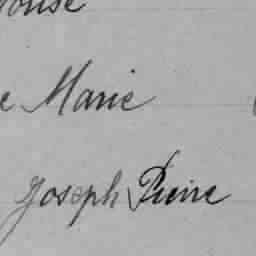 e Marie
Joseph Pierre